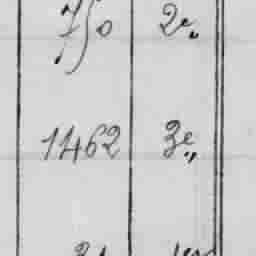 750 2e„
1462 3e„